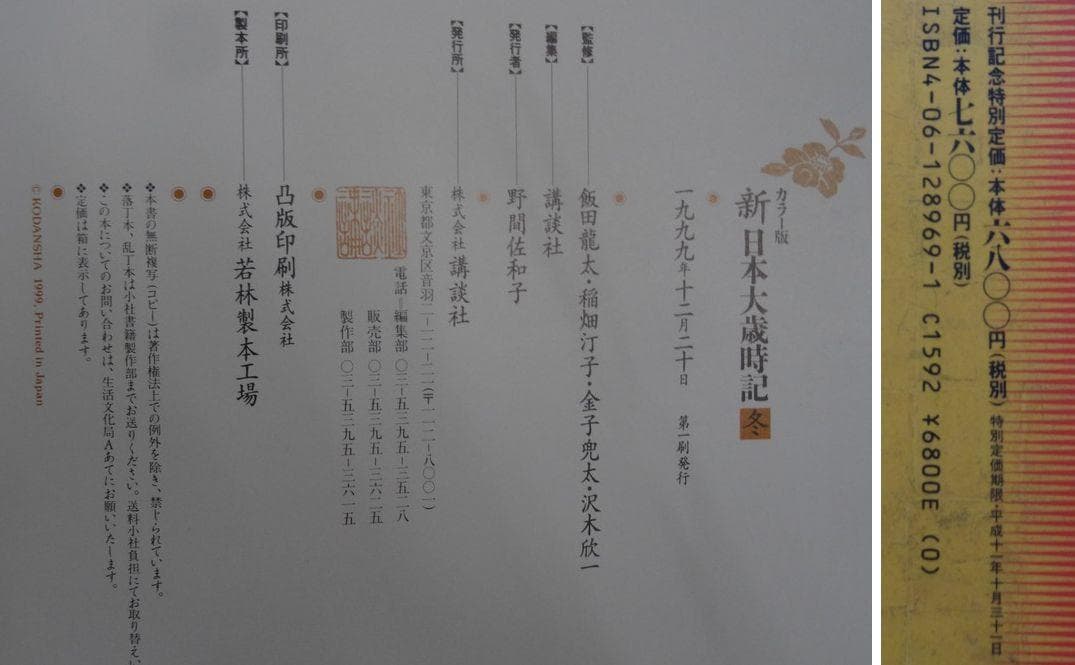 カラー版
新日本大歳時記 冬
一九九九年十二月二十日 第一刷発行
【監修】 飯田龍太・稲畑汀子・金子兜太・沢木欣一
【編集】 講談社
【発行者】 野間佐和子
【発行所】 株式会社 講談社
東京都文京区音羽二―一二―二一(〒一一二―八〇〇一)
電話=編集部 〇三―五三九五―三五二八
販売部 〇三―五三九五―三六二五
製作部 〇三―五三九五―三六一五
【印刷所】 凸版印刷株式会社
【製本所】 株式会社 若林製本工場
❖本書の無断複写(コピー)は著作権法上での例外を除き、禁じられています。
❖落丁本、乱丁本は小社書籍製作部までお送りください。送料小社負担にてお取り替えい
❖この本についてのお問い合わせは、生活文化局Aあてにお願いいたします。
❖定価は箱に表示してあります。
© KODANSHA 1999, Printed in Japan
刊行記念特別定価:本体六八〇〇円(税別) 特別定価期限・平成十一年十月三十一日
定価:本体七六〇〇円(税別)
ISBN4-06-128969-1 C1592 ¥6800E (0)